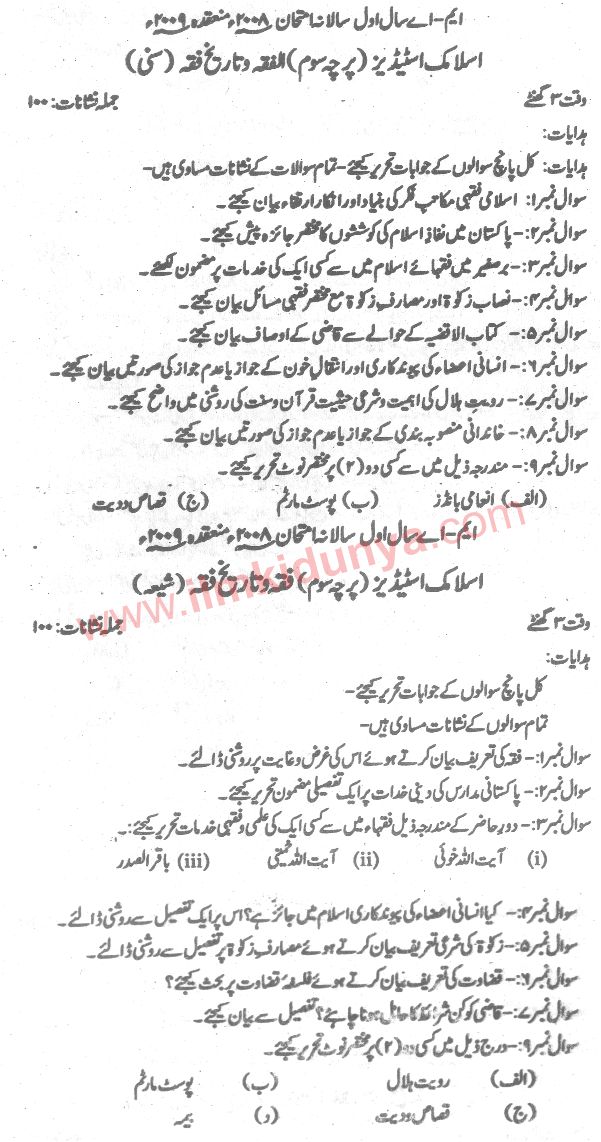 ایم-اے سال اول سالانہ امتحان ۲۰۰۸ء منعقدہ ۲۰۰۹ء
اسلامک اسٹیڈیز (پرچہ سوم) الفقہ و تاریخ فقہ (سنی)
وقت ۳ گھنٹے جملہ نشانات: ۱۰۰
ہدایات:
ہدایات: کل پانچ سوالوں کے جوابات تحریر کیجئے- تمام سوالات کے نشانات مساوی ہیں-
سوال نمبر۱: اسلامی فقہی مکاتب فکر کی بنیاد اور انکا ارتقاء بیان کیجئے۔
سوال نمبر۲:- پاکستان میں نفاذ اسلام کی کوششوں کا مختصر جائزہ پیش کیجئے۔
سوال نمبر۳:- برصغیر میں فقہائے اسلام میں سے کسی ایک کی خدمات پر مضمون لکھئے۔
سوال نمبر۴:- نصاب زکوۃ اور مصارف زکوۃ مع مختصر فقہی مسائل بیان کیجئے۔
سوال نمبر۵:- کتاب الاقضیہ کے حوالے سے قاضی کے اوصاف بیان کیجئے۔
سوال نمبر۶:- انسانی اعضاء کی پیوندکاری اور انتقال خون کے جواز یا عدم جواز کی صورتیں بیان کیجئے۔
سوال نمبر۷:- رویت ہلال کی اہمیت و شرعی حیثیت قرآن و سنت کی روشنی میں واضح کیجئے۔
سوال نمبر۸:- خاندانی منصوبہ بندی کے جواز یا عدم جواز کی صورتیں بیان کیجئے۔
سوال نمبر۹:- مندرجہ ذیل میں سے کسی دو (۲) پر مختصر نوٹ تحریر کیجئے۔
(الف) انعامی بانڈز (ب) پوسٹ مارٹم (ج) قصاص و دیت
ایم-اے سال اول سالانہ امتحان ۲۰۰۸ء منعقدہ ۲۰۰۹ء
اسلامک اسٹیڈیز (پرچہ سوم) فقہ و تاریخ فقہ (شیعہ)
www.ilmkidunya.com
وقت ۳ گھنٹے جملہ نشانات: ۱۰۰
ہدایات:
کل پانچ سوالوں کے جوابات تحریر کیجئے-
تمام سوالوں کے نشانات مساوی ہیں-
سوال نمبر۱:- فقہ کی تعریف بیان کرتے ہوئے اس کی غرض و غایت پر روشنی ڈالئے۔
سوال نمبر۲:- پاکستانی مدارس کی دینی خدمات پر ایک تفصیلی مضمون تحریر کیجئے۔
سوال نمبر۳:- دور حاضر کے مندرجہ ذیل فقہاء میں سے کسی ایک کی علمی و فقہی خدمات تحریر کیجئے:۔
(i) آیت اللہ خوئی (ii) آیت اللہ خمینی (iii) باقر الصدر
سوال نمبر۴:- کیا انسانی اعضاء کی پیوندکاری اسلام میں جائز ہے؟ اس پر ایک تفصیل سے روشنی ڈالئے۔
سوال نمبر۵:- زکوۃ کی شرعی تعریف بیان کرتے ہوئے مصارف زکوۃ پر تفصیل سے روشنی ڈالئے۔
سوال نمبر۶:- قضاوت کی تعریف بیان کرتے ہوئے فلسفہ قضاوت پر بحث کیجئے؟
سوال نمبر۷:- قاضی کو کن شرائط کا حامل ہونا چاہئے؟ تفصیل سے بیان کیجئے۔
سوال نمبر۹:- درج ذیل میں کسی دو (۲) پر مختصر نوٹ تحریر کیجئے۔
(الف) رویت ہلال (ب) پوسٹ مارٹم
(ج) قصاص و دیت (د) بیمہ